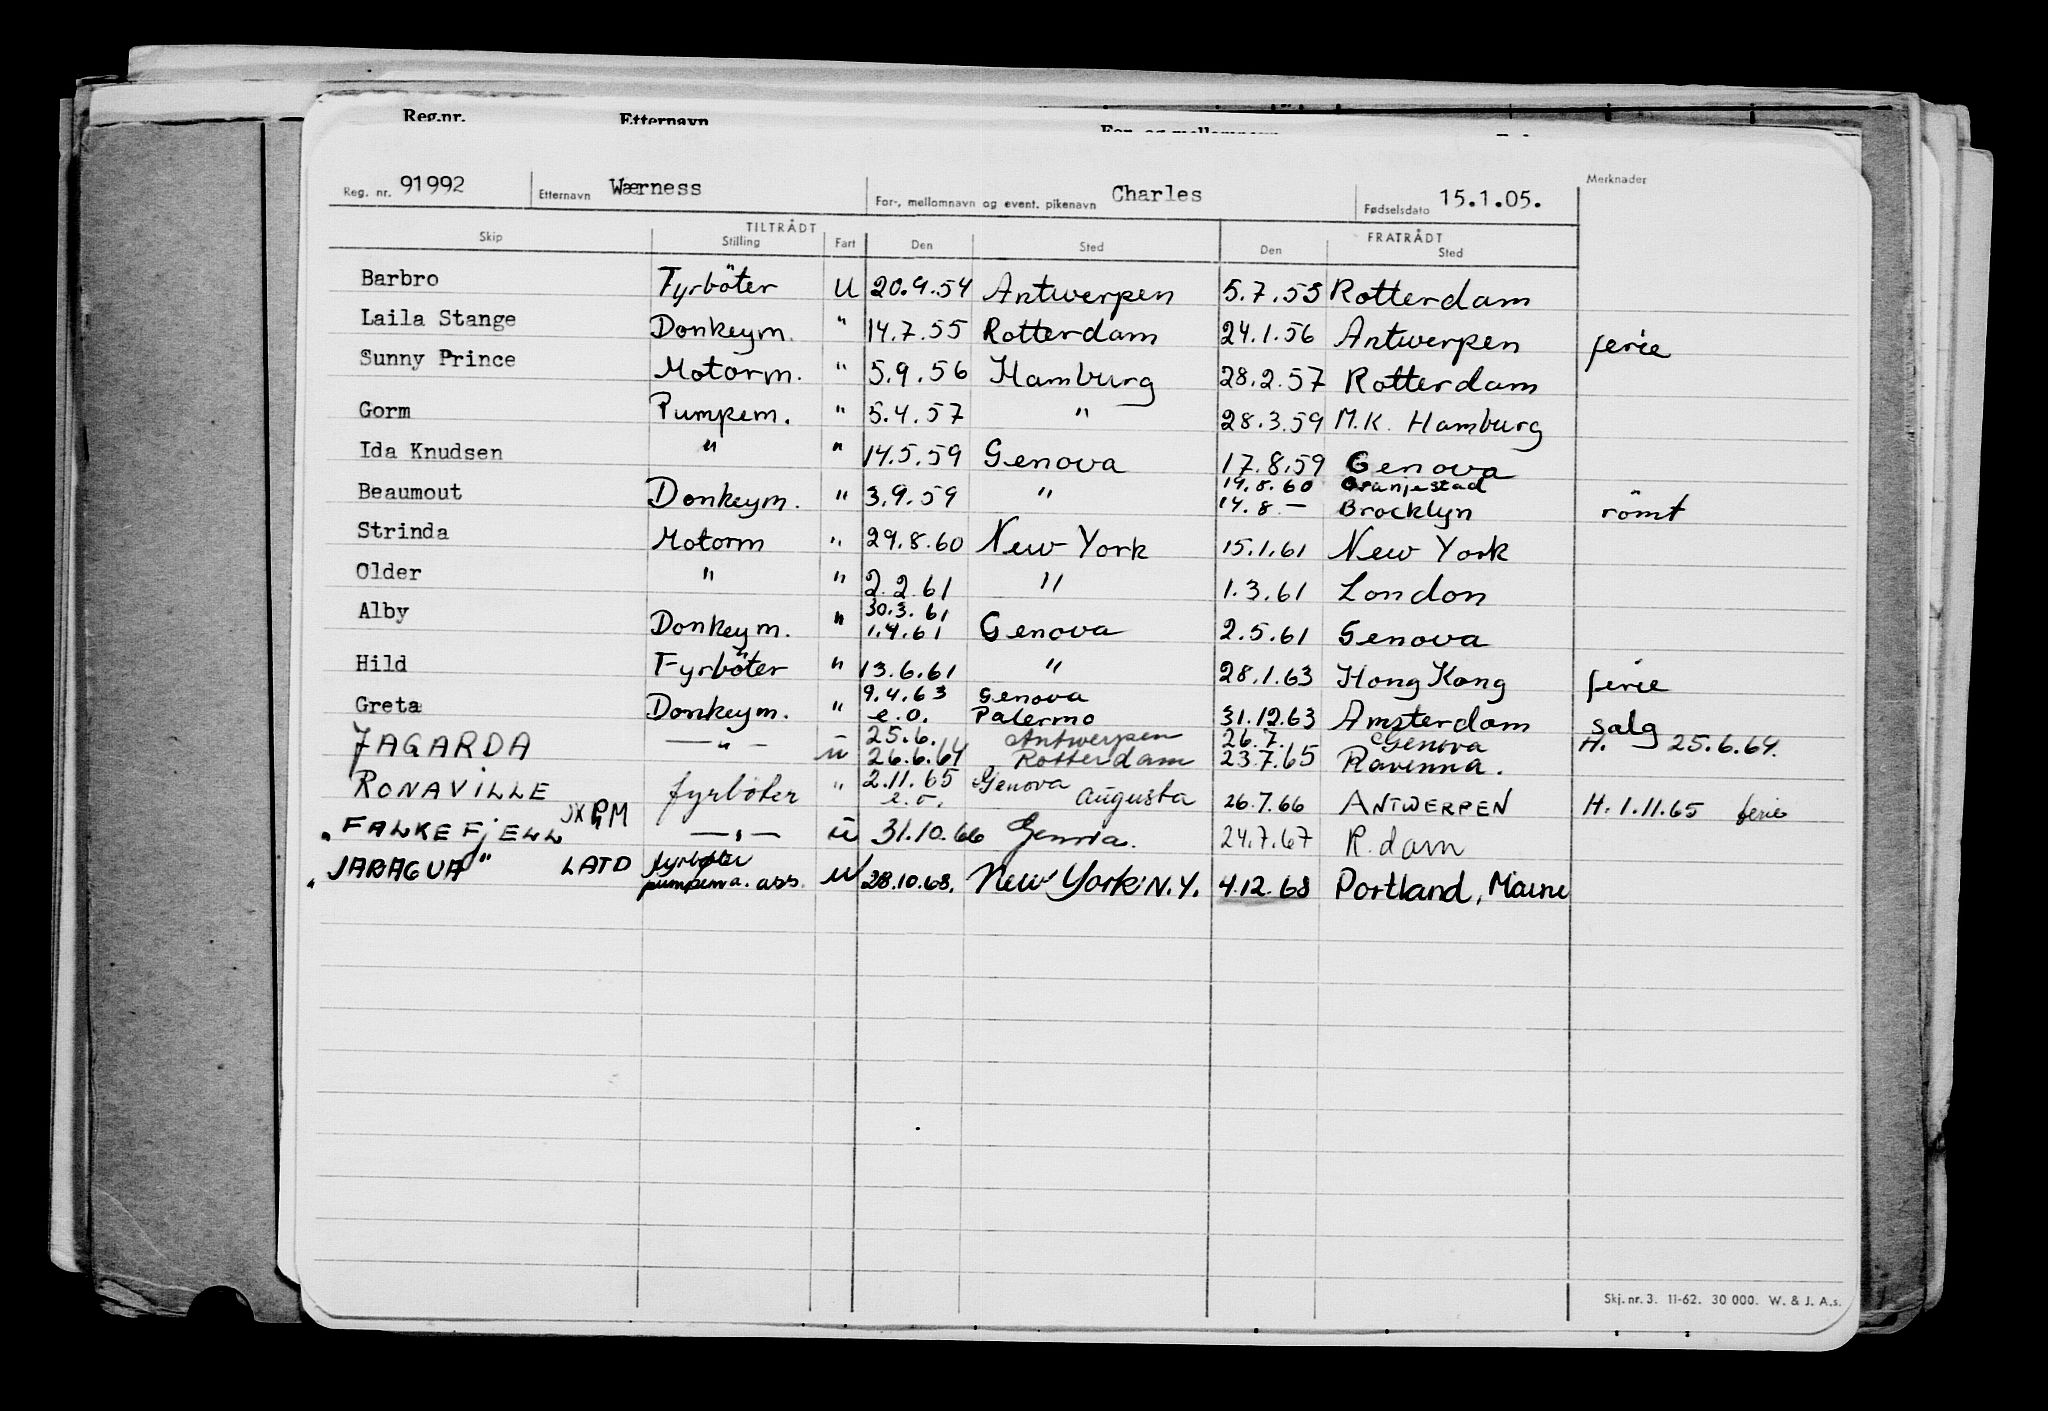 Reg.nr. Etternavn For- og mellomnavn
Reg. nr. 91992 Etternavn Wærness For-, mellomnavn og event. pikenavn Charles Fødselsdato 15.1.05. Merknader
TILTRÅDT FRATRÅDT
Skip Stilling Fart Den Sted Den Sted
Barbro Fyrböter U 20.9.54 Antwerpen 5.7.55 Rotterdam
Laila Stange Donkeym. " 14.7.55 Rotterdam 24.1.56 Antwerpen ferie
Sunny Prince Motorm. " 5.9.56 Hamburg 28.2.57 Rotterdam
Gorm Pumpem. " 5.4.57 " 28.3.59 M.K. Hamburg
Ida Knudsen " " 14.5.59 Genova 17.8.59 Genova
14.8.60 Oranjestad
Beaumout Donkeym. " 3.9.59 " 14.8.— Brocklyn römt
Strinda Motorm " 29.8.60 New York 15.1.61 New York
Older " " 2.2.61 " 1.3.61 London
30.3.61
Alby Donkeym. " 1.4.61 Genova 2.5.61 Genova
Hild Fyrböter " 13.6.61 " 28.1.63 Hong Kong ferie
9.4.63 Genova
Greta Donkeym. " e.o. Palermo 31.12.63 Amsterdam salg
25.6. Antwerpen 26.7. Genova H. 25.6.64.
JAGARDA —"— u 26.6.64 Rotterdam 23.7.65 Ravenna.
2.11.65 Genova
RONAVILLE fyrböter " e.o. Augusta 26.7.66 ANTWERPEN H. 1.11.65 ferie
"FALKEFJELL JXPM —"— u 31.10.66 Genova. 24.7.67 R.dam
"JARAGUA" LATD fyrbøter
pumpema. ass. u 28.10.68. New York N.Y. 4.12.68 Portland, Maine
Skj. nr. 3. 11-62. 30 000. W. & J. A.s.